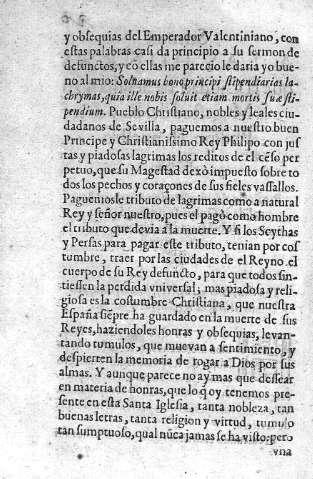 y obsequias del Emperador Valentiniano, con
estas palabras casi da principio a su sermon de
defunctos, y cõ ellas me parecio le daria yo bue-
no al mio: Soluamus bono principi stipendiarias la-
chrymas, quia ille nobis soluit etiam mortis suæ sti-
pendium. Pueblo Christiano, nobles y leales ciu-
dadanos de Sevilla, paguemos a nuestro buen
Principe y Christianissimo Rey Philipo con jus
tas y piadosas lagrimas los reditos de el cẽso per
petuo, que su Magestad dexò impuesto sobre to
dos los pechos y coraçones de sus fieles vassallos.
Paguemosle tributo de lagrimas como a natural
Rey y señor nuestro, pues el pagò como hombre
el tributo que devia a la muerte. Y si los Scythas
y Persas para pagar este tributo, tenian por cos
tumbre, traer por las ciudades de el Reyno el
cuerpo de su Rey defuncto, para que todos sin-
tiessen la perdida vniversal; mas piadosa y reli-
giosa es la costumbre Christiana, que nuestra
España siẽpre ha guardado en la muerte de sus
Reyes, haziendoles honras y obsequias, levan-
tando tumulos, que muevan a sentimiento, y
despierten la memoria de rogar a Dios por sus
almas. Y aunque parece no ay mas que dessear
en materia de honras, que lo q̃ oy tenemos pre-
sente en esta Santa Iglesia, tanta nobleza, tan
buenas letras, tanta religion y virtud, tumulo
tan sumptuoso, qual nũca jamas se ha visto: pero
vna